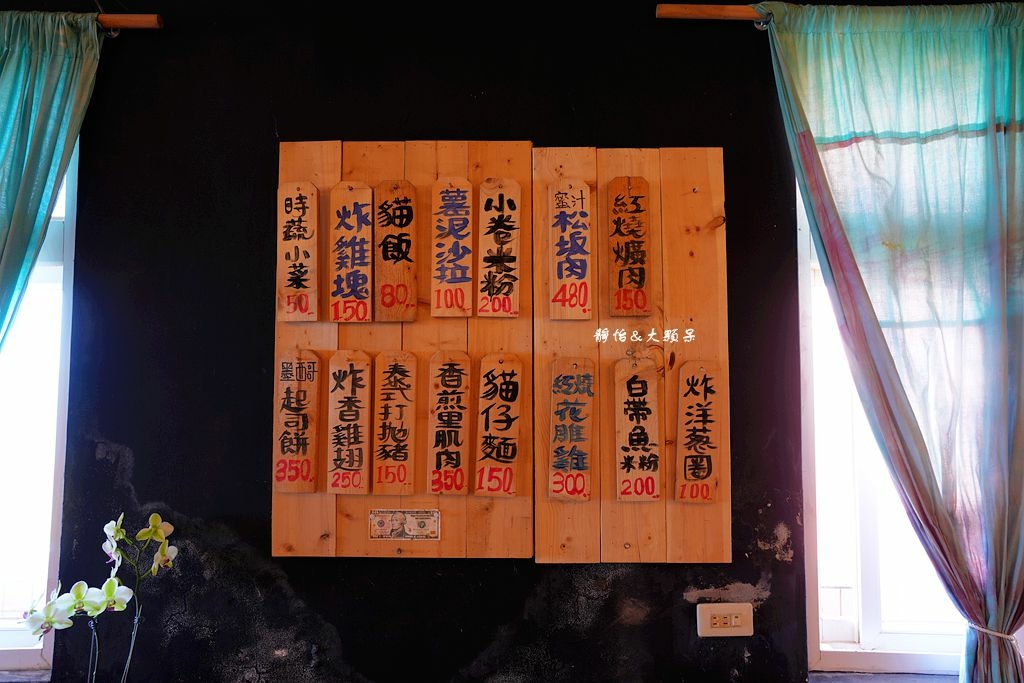 時蔬小菜 50
炸雞塊 150
貓飯 80
薯泥沙拉 100
小卷米粉 200
蜜汁松坂肉 480
紅燒爌肉 150
靜怡&大顆呆
墨西哥起司餅 350
炸香雞翅 250
泰式打拋豬 150
香煎里肌肉 350
貓仔麵 150
紅燒花雕雞 300
白帶魚米粉 200
炸洋蔥圈 100